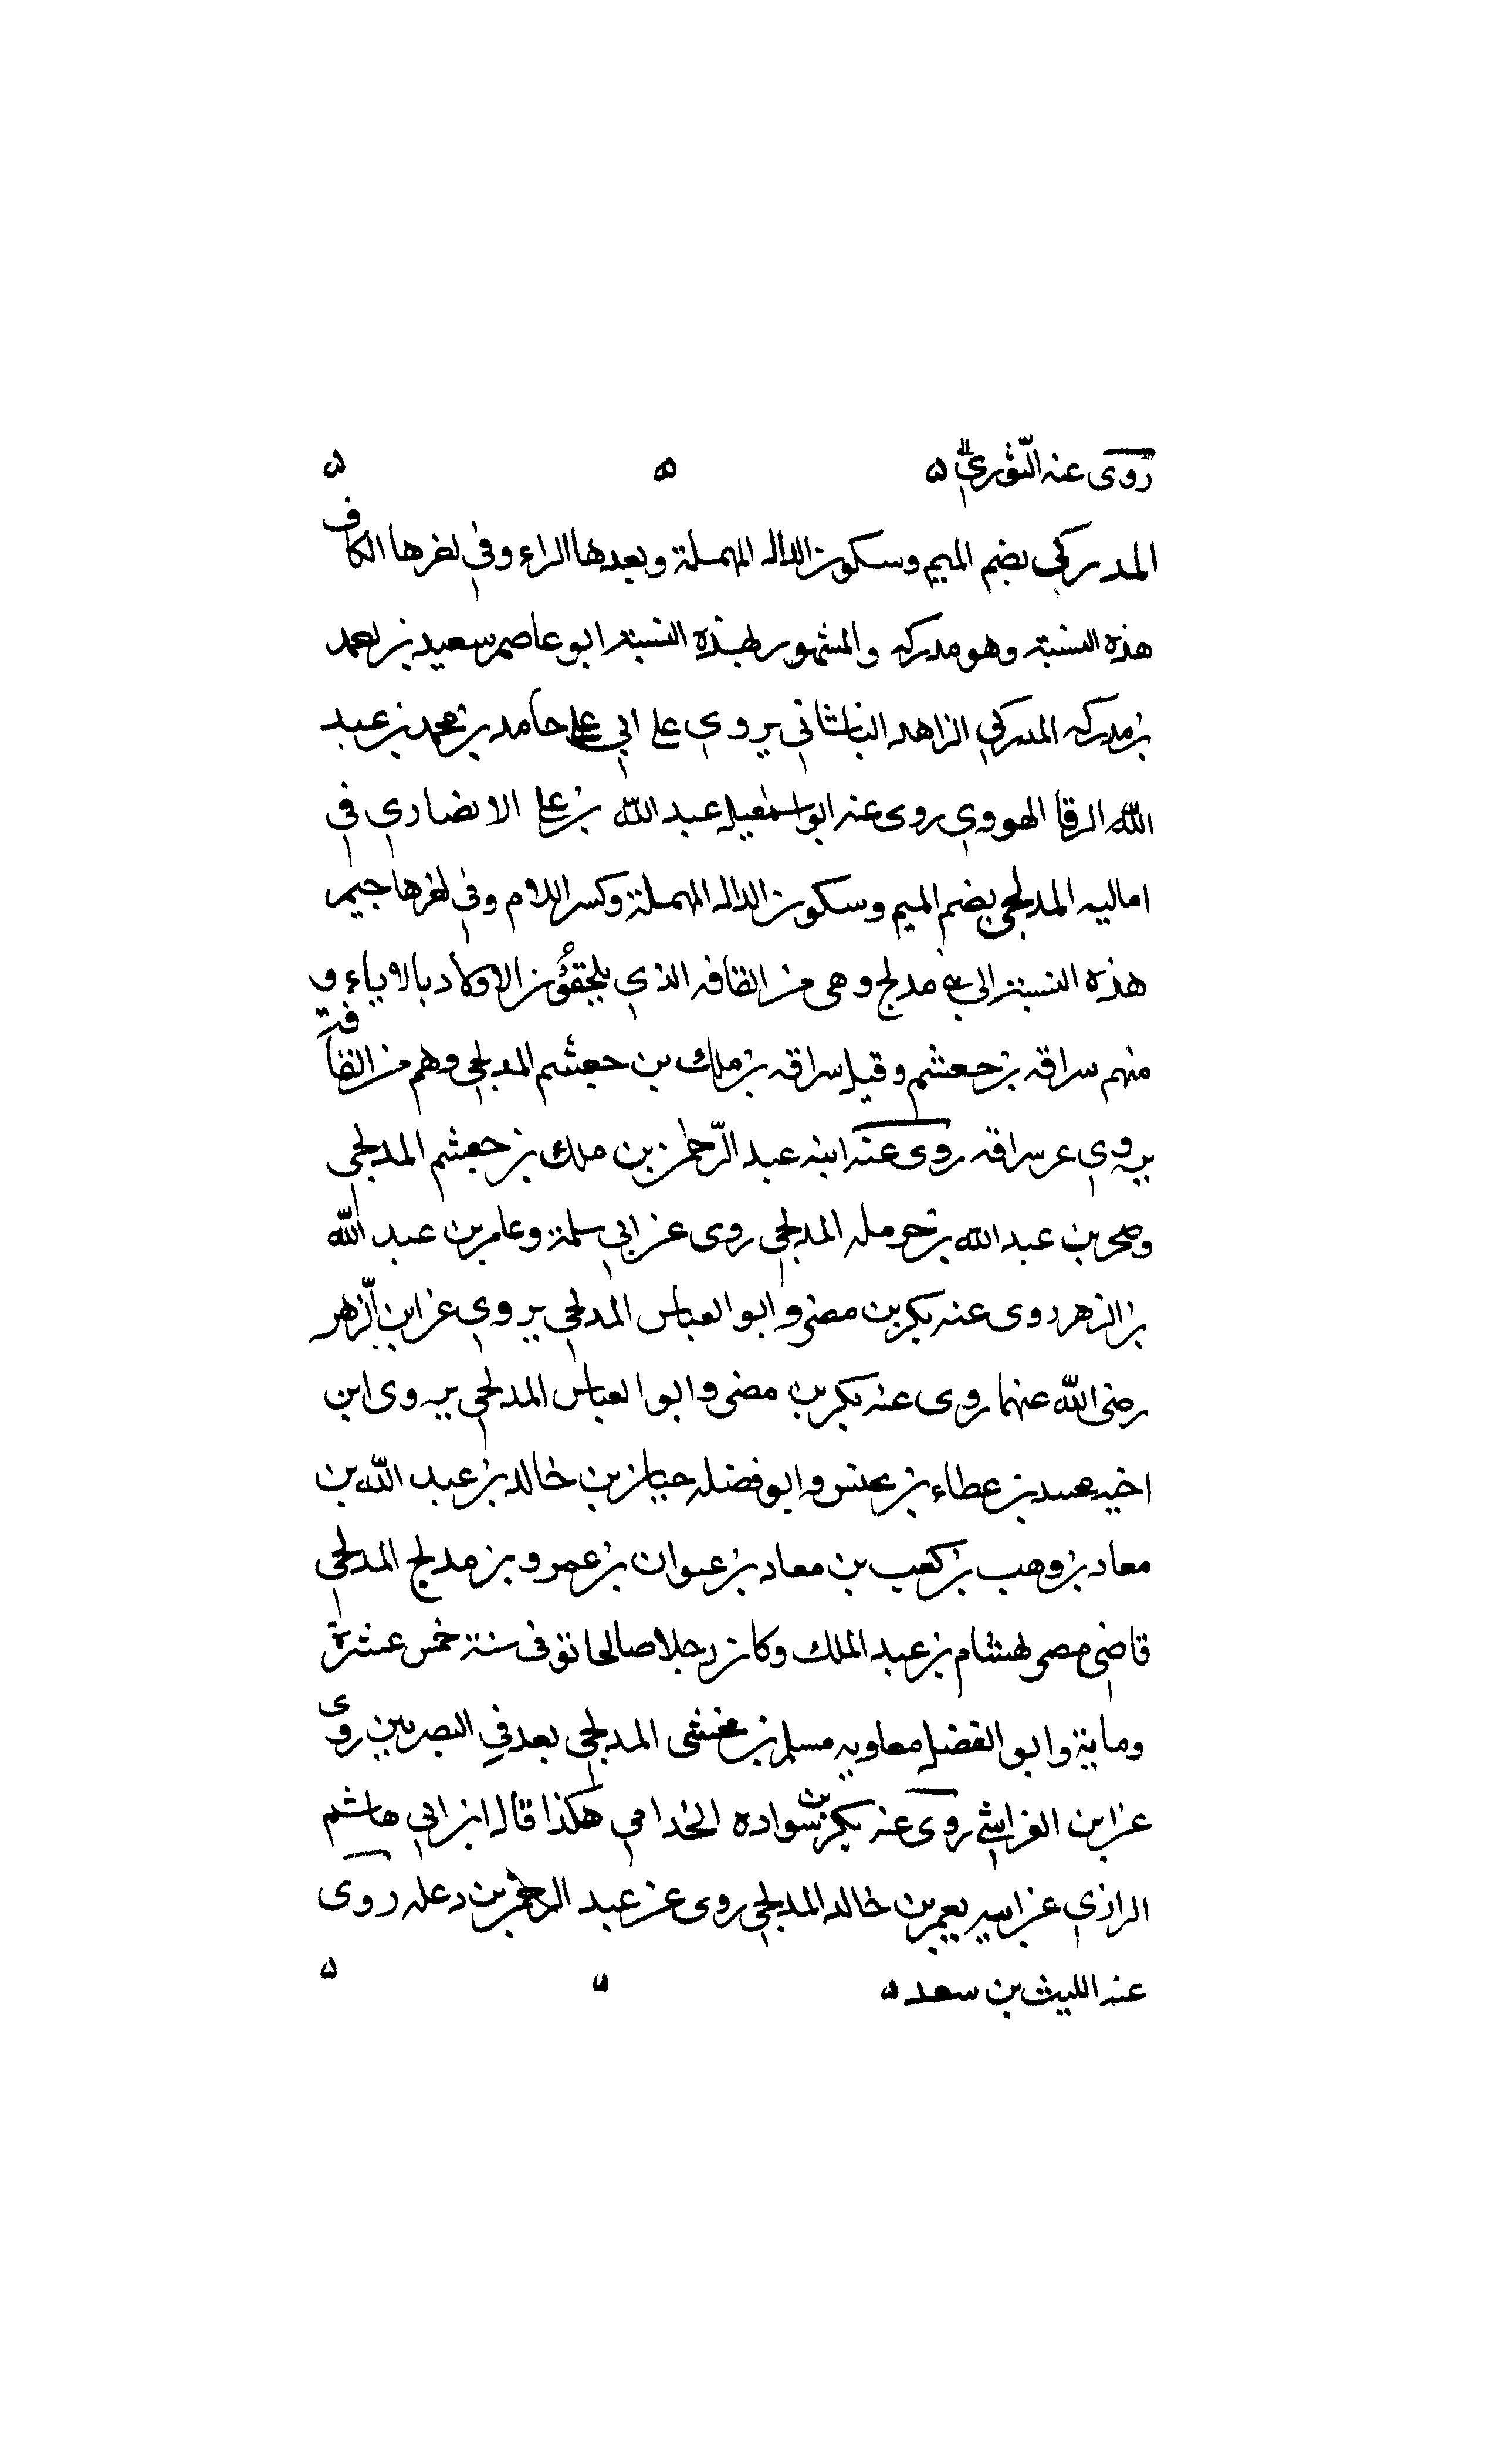 روى عنه الثوري ه ه ه
المدركي بضم الميم وسكون الدال المهملة وبعدها الراء وفي اخرها الكاف
هذه النسبة وهو مدرك والمشهور بهذه النسبة ابو عاصم سعيد بن احمد
بن مدرك المدركي الزاهد الباشاني يروي على ابي علي حامد بن محمد بن عبد
الله الرفا الهروي روى عنه ابو اسمعيل عبد الله بن علي الانصاري في
اماليه المدلجي بضم الميم وسكون الدال المهملة وكسر اللام وفي اخرها جيم
هذه النسبة الى بني مدلج وهي من القافه الذي يلحقون الاولاد بالاباء و
منهم سراقه بن جعشم وقيل سراقه بن ملك بن جعشم المدلجي وهم من القافة
يروي عن سراقه روى عنه ابنه عبد الرحمن بن ملك بن جعشم المدلجي
وصخر بن عبد الله بن حرمله المدلجي روى عن ابي سلمة وعامر بن عبد الله
بن الزهر روى عنه بكر بن مضر وابو العباس المدلجي يروي عن ابن الزهر
رضى الله عنهما روى عنه بكر بن مضى وابو العباس المدلجي يروى ابن
اخيه بن عطاء بن وابو فضله حيان بن خالد بن عبد الله بن
معاد بن وهب بن كعب بن معاد بن عتوان بن عمرو بن مدلج المدلجي
قاضي مصر لهشام بن عبد الملك وكان رجلا صالحا توفى سنة خمس عشرة
وماية وابو الفضل معاويه مسلم بن مخشى المدلجي يعد في البصريين روى
عن ابن الفراسي روى عنه بكر بن سواده الخدامي هكذا قال ابن ابي هاشم
الرازي عن ابيه يعمر بن خالد المدلجي روى عن عبد الرحمن بن وعله روى
عنه الليث بن سعد ه ه ه